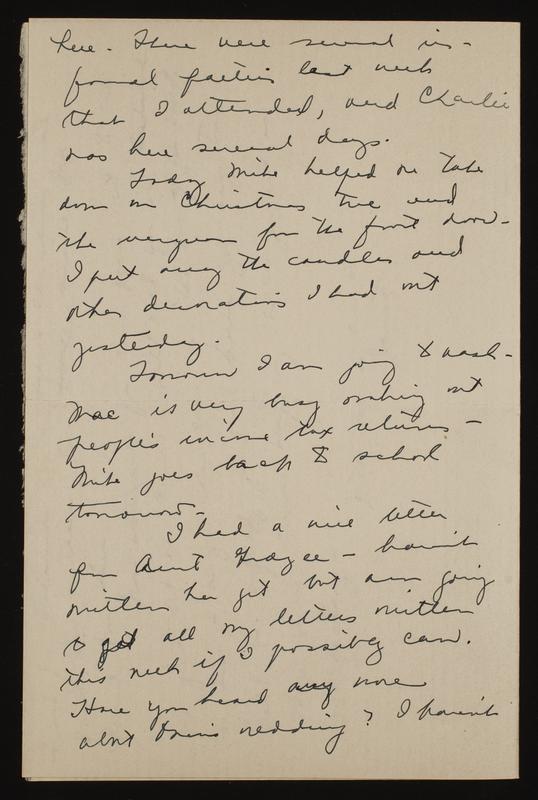 here - There were several in-
formal parties last week
that I attended, and Charlie
was here several days.
Today Mike helped me take
down our Christmas tree and
the evergreen for the front door -
I put away the candles and
other decorations I had out
yesterday.
Tomorrow I am going to wash -
Mae is very busy making out
people's income tax returns -
Mike goes back to school
tomorrow -
I had a nice letter
from Aunt - haven't
written her yet but am going
to get all my letters written
this week if I possibly can.
Have you heard any more
about wedding? I haven't